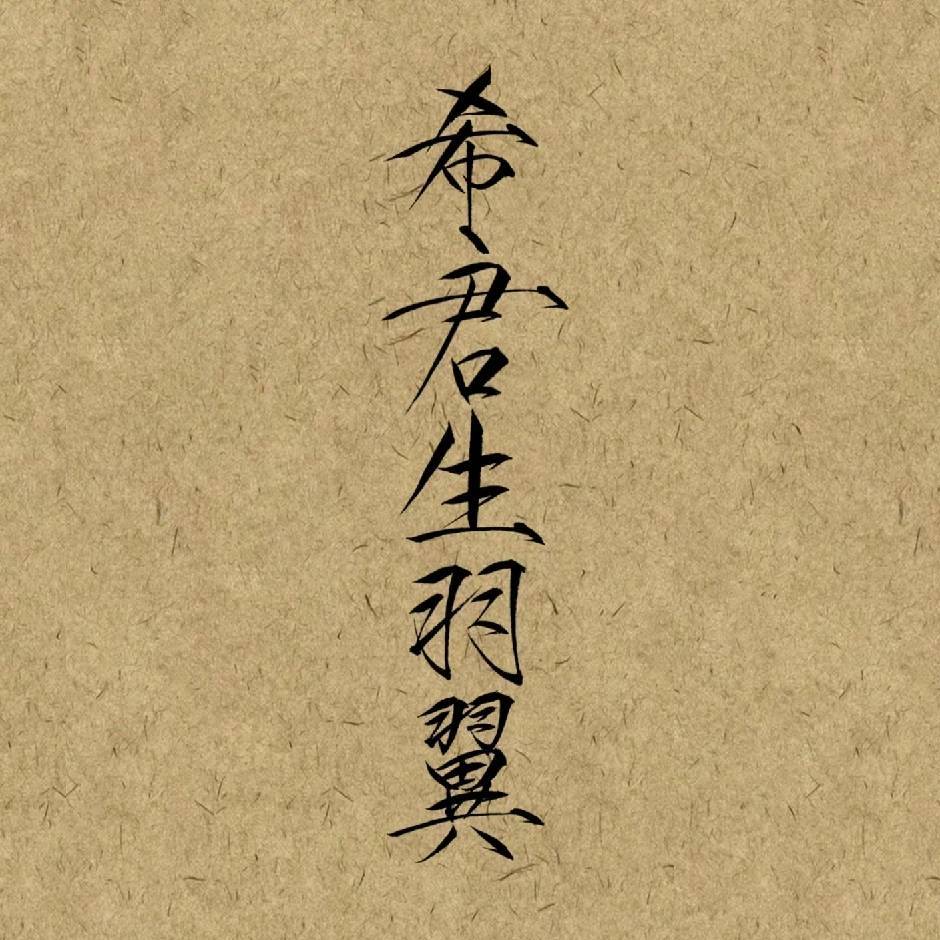 希君生羽翼